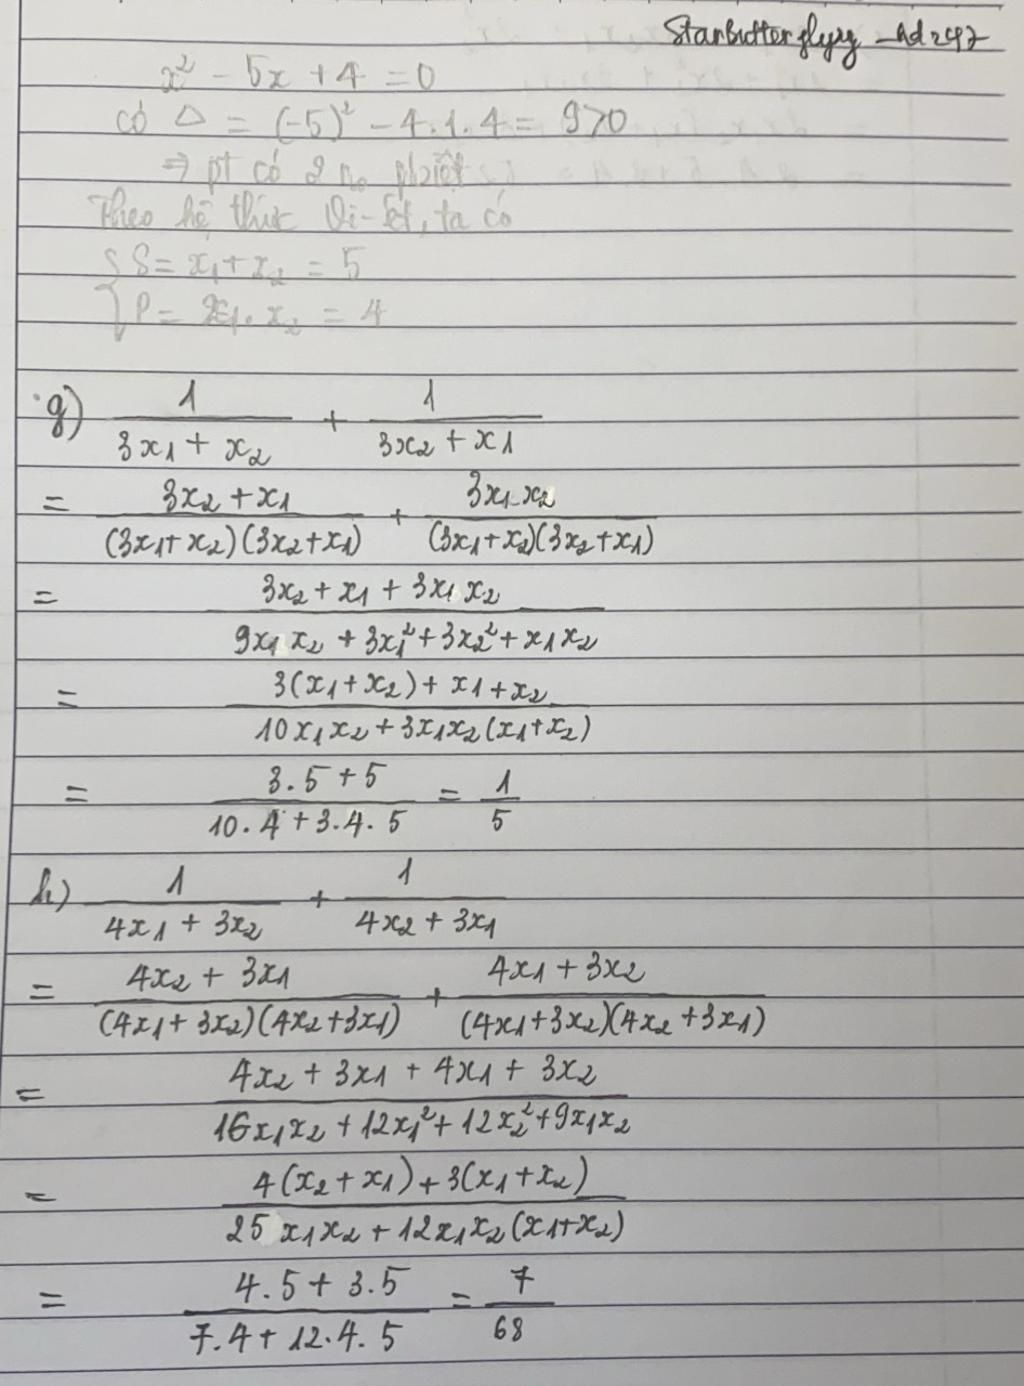 StarButterflyyy_Ad247
x² - 5x + 4 = 0
có Δ = (-5)² - 4.1.4 = 9>0
⇒ pt có 2 no pbiệt
Theo hệ thức Vi-ét, ta có
{ S = x₁ + x₂ = 5
P = x₁. x₂ = 4
g) 1/(3x₁ + x₂) + 1/(3x₂ + x₁)
= (3x₂ + x₁)/((3x₁+ x₂)(3x₂+x₁)) + (3x₁ x₂)/((3x₁+x₂)(3x₂+x₁))
= (3x₂ + x₁ + 3x₁ x₂)/(9x₁ x₂ + 3x₁² + 3x₂² + x₁x₂)
= (3(x₁+x₂) + x₁+x₂)/(10x₁x₂ + 3x₁x₂(x₁+x₂))
= (3.5 + 5)/(10.4 + 3.4.5) = 1/5
h) 1/(4x₁ + 3x₂) + 1/(4x₂ + 3x₁)
= (4x₂ + 3x₁)/((4x₁+ 3x₂)(4x₂+3x₁)) + (4x₁ + 3x₂)/((4x₁+3x₂)(4x₂+3x₁))
= (4x₂ + 3x₁ + 4x₁ + 3x₂)/(16x₁x₂ + 12x₁² + 12x₂² + 9x₁x₂)
= (4(x₂ + x₁) + 3(x₁+x₂))/(25 x₁x₂ + 12x₁x₂(x₁+x₂))
= (4.5 + 3.5)/(7.4 + 12.4.5) = 7/68